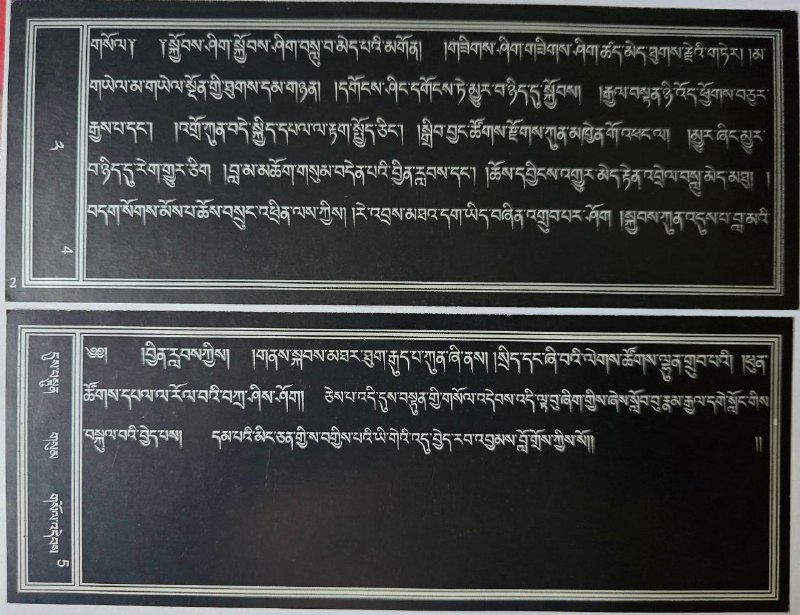 གསོལ༑ ༑སྐྱོབས་ཤིག་སྐྱོབས་ཤིག་བསླུ་བ་མེད་པའི་མགོན། །གཟིགས་ཤིག་གཟིགས་ཤིག་ཚད་མེད་ཐུགས་རྗེའི་གཏེར། །མ་
གཡེལ་མ་གཡེལ་སྔོན་གྱི་ཐུགས་དམ་གཉན། །དགོངས་ཤིང་དགོངས་ཏེ་མྱུར་བ་ཉིད་དུ་སྐྱོབས། །རྒྱལ་བསྟན་ཉི་འོད་ཕྱོགས་བཅུར་
རྒྱས་པ་དང་། །འགྲོ་ཀུན་བདེ་སྐྱིད་དཔལ་ལ་རྟག་སྤྱོད་ཅིང་། །སྒྲིབ་བྱང་ཚོགས་རྫོགས་ཀུན་མཁྱེན་གོ་འཕང་ལ། །མྱུར་ཞིང་མྱུར་
༢
བ་ཉིད་དུ་རེག་གྱུར་ཅིག །བླ་མ་མཆོག་གསུམ་བདེན་པའི་བྱིན་རླབས་དང་། །ཆོས་དབྱིངས་འགྱུར་མེད་རྟེན་འབྲེལ་བསླུ་མེད་མཐུ། །
བདག་སོགས་མོས་པ་ཆོས་བསྲུང་འཕྲིན་ལས་ཀྱིས། །རེ་འབྲས་མཐའ་དག་ཡིད་བཞིན་འགྲུབ་པར་ཤོག །སྐྱབས་ཀུན་འདུས་པ་བླ་མའི་
4
2
༄༅། །བྱིན་རླབས་ཀྱིས། །གནས་སྐབས་མཐར་ཐུག་རྒུད་པ་ཀུན་ཞི་ནས། །སྲིད་དང་ཞི་བའི་ལེགས་ཚོགས་ལྷུན་གྲུབ་པའི། །ཕུན་
ཚོགས་དཔལ་ལ་རོལ་བའི་བཀྲ་ཤིས་ཤོག། ཅེས་པ་འདི་དུས་བསྟུན་གྱི་གསོལ་འདེབས་འདི་ལྟ་བུ་ཞིག་གྱིས་ཞེས་སློབ་བུ་རྣམ་རྒྱལ་དགེ་སློང་གིས་
བསྐུལ་བའི་བྱེད་པས། དམ་པའི་མིང་ཅན་གྱི་ས་བགྱིས་པའི་ཡི་གེའི་འདུ་བྱེད་རབ་འབྱམས་བློ་གྲོས་ཀྱིས་སོ།། །།
དུས་བསྟུན གསུམ། གསོལ་འདེབས།
5